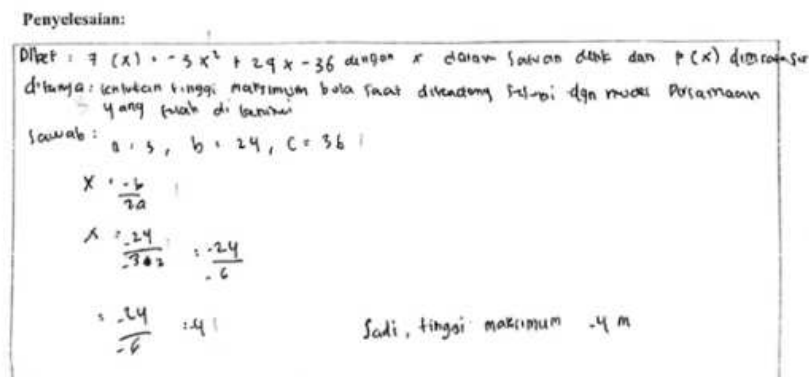 Penyelesaian:
Diket : f (x) = -3x² + 24x - 36 dengan x dalam satuan detik dan f(x) dim
ditanya : tentukan tinggi maksimum bola saat ditendang sesuai dgn model Persamaan
yang telah di
Jawab : a = 3, b = 24, C = 36
x = -b / 2a
x = -24 / -3•2 = -24 / -6
= -24 / -6 = 4
Jadi, tinggi maksimum -4 m